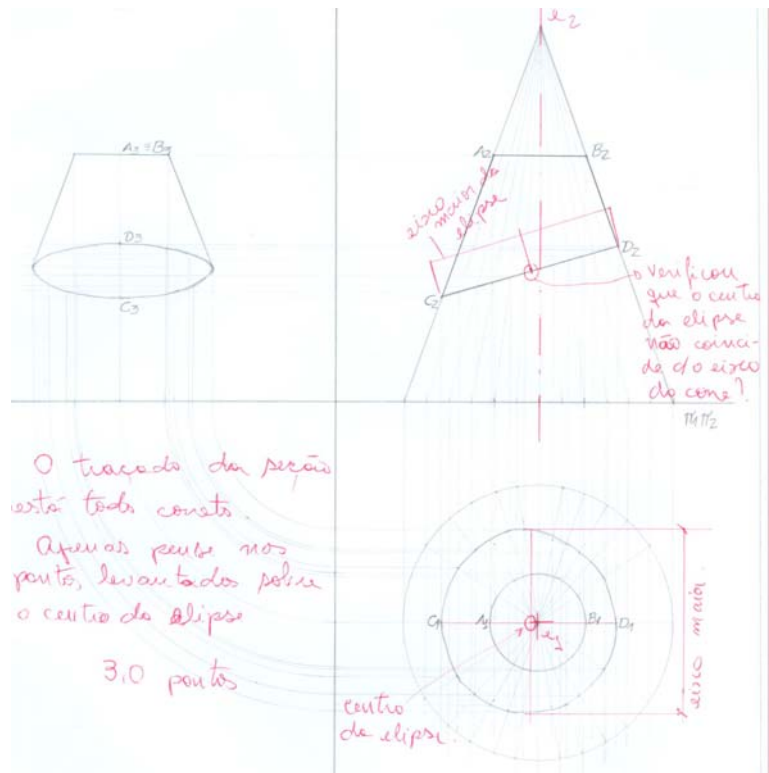 e2
A3≡B3
A2
B2
eixo
maior da
elipse
D3
D2
C2
C3
verificou
que o centro
da elipse
não coinci-
de c/o eixo
do cone?
π1π2
O traçado da seção
está todo correto.
Apenas pense nos
pontos levantados sobre
o centro da elipse
3,0 pontos
C1
A1
e1
B1
D1
eixo maior
centro
da elipse